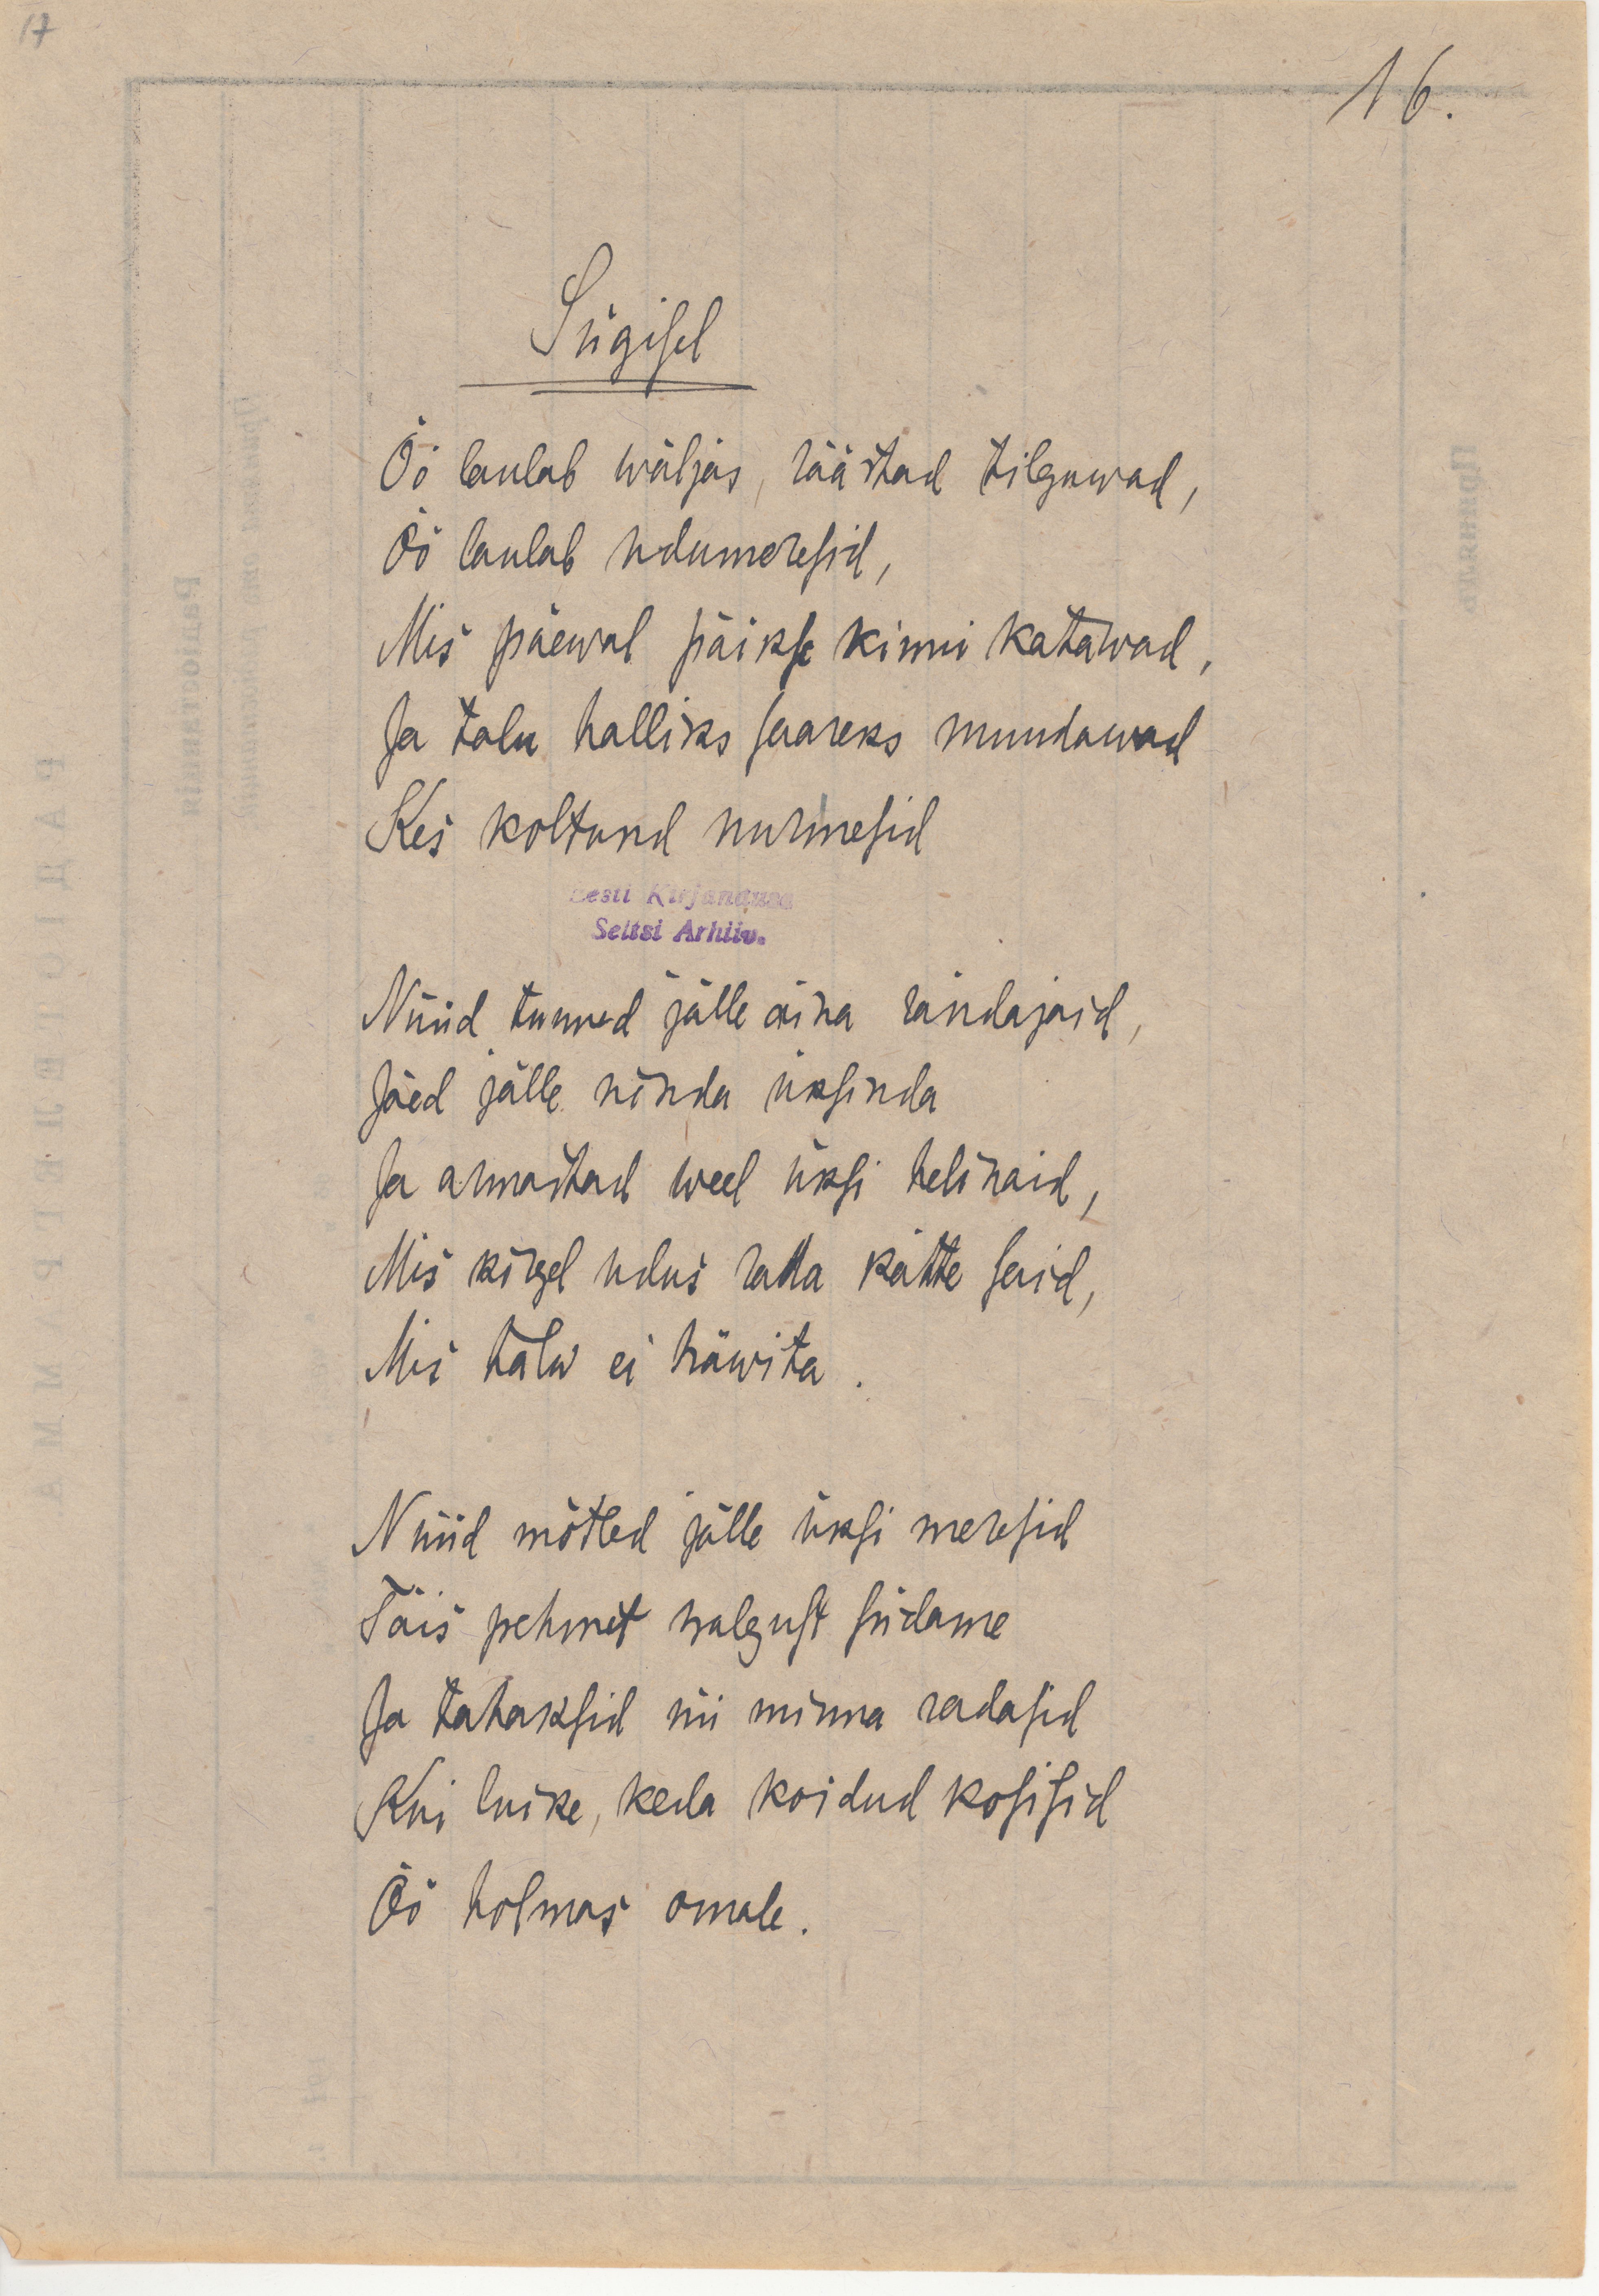 17
16.
Sügisel
Öö laulab wäljas, räästad tilguwad,
Öö laulab udumeresid,
Mis päewal päikse kinni katawad,
Ja talu halliks saareks muudawad
Kes koltund nurmesid
Eesti Kirjanduse
Seltsi Arhiiv.
Nüüd tunned jälle aina rändajaid,
Jäed jälle nõnda üksinda
Ja armastad weel üksi helinaid,
Mis kõrgel udus rada kätte said,
Mis talw ei häwita.
Nüüd mõtled jälle üksi meresid
Täis pehmet walgust südame
Ja tahaksid nii minna radasid
Kui luike, keda koidud kosisid
Öö holmas omale.